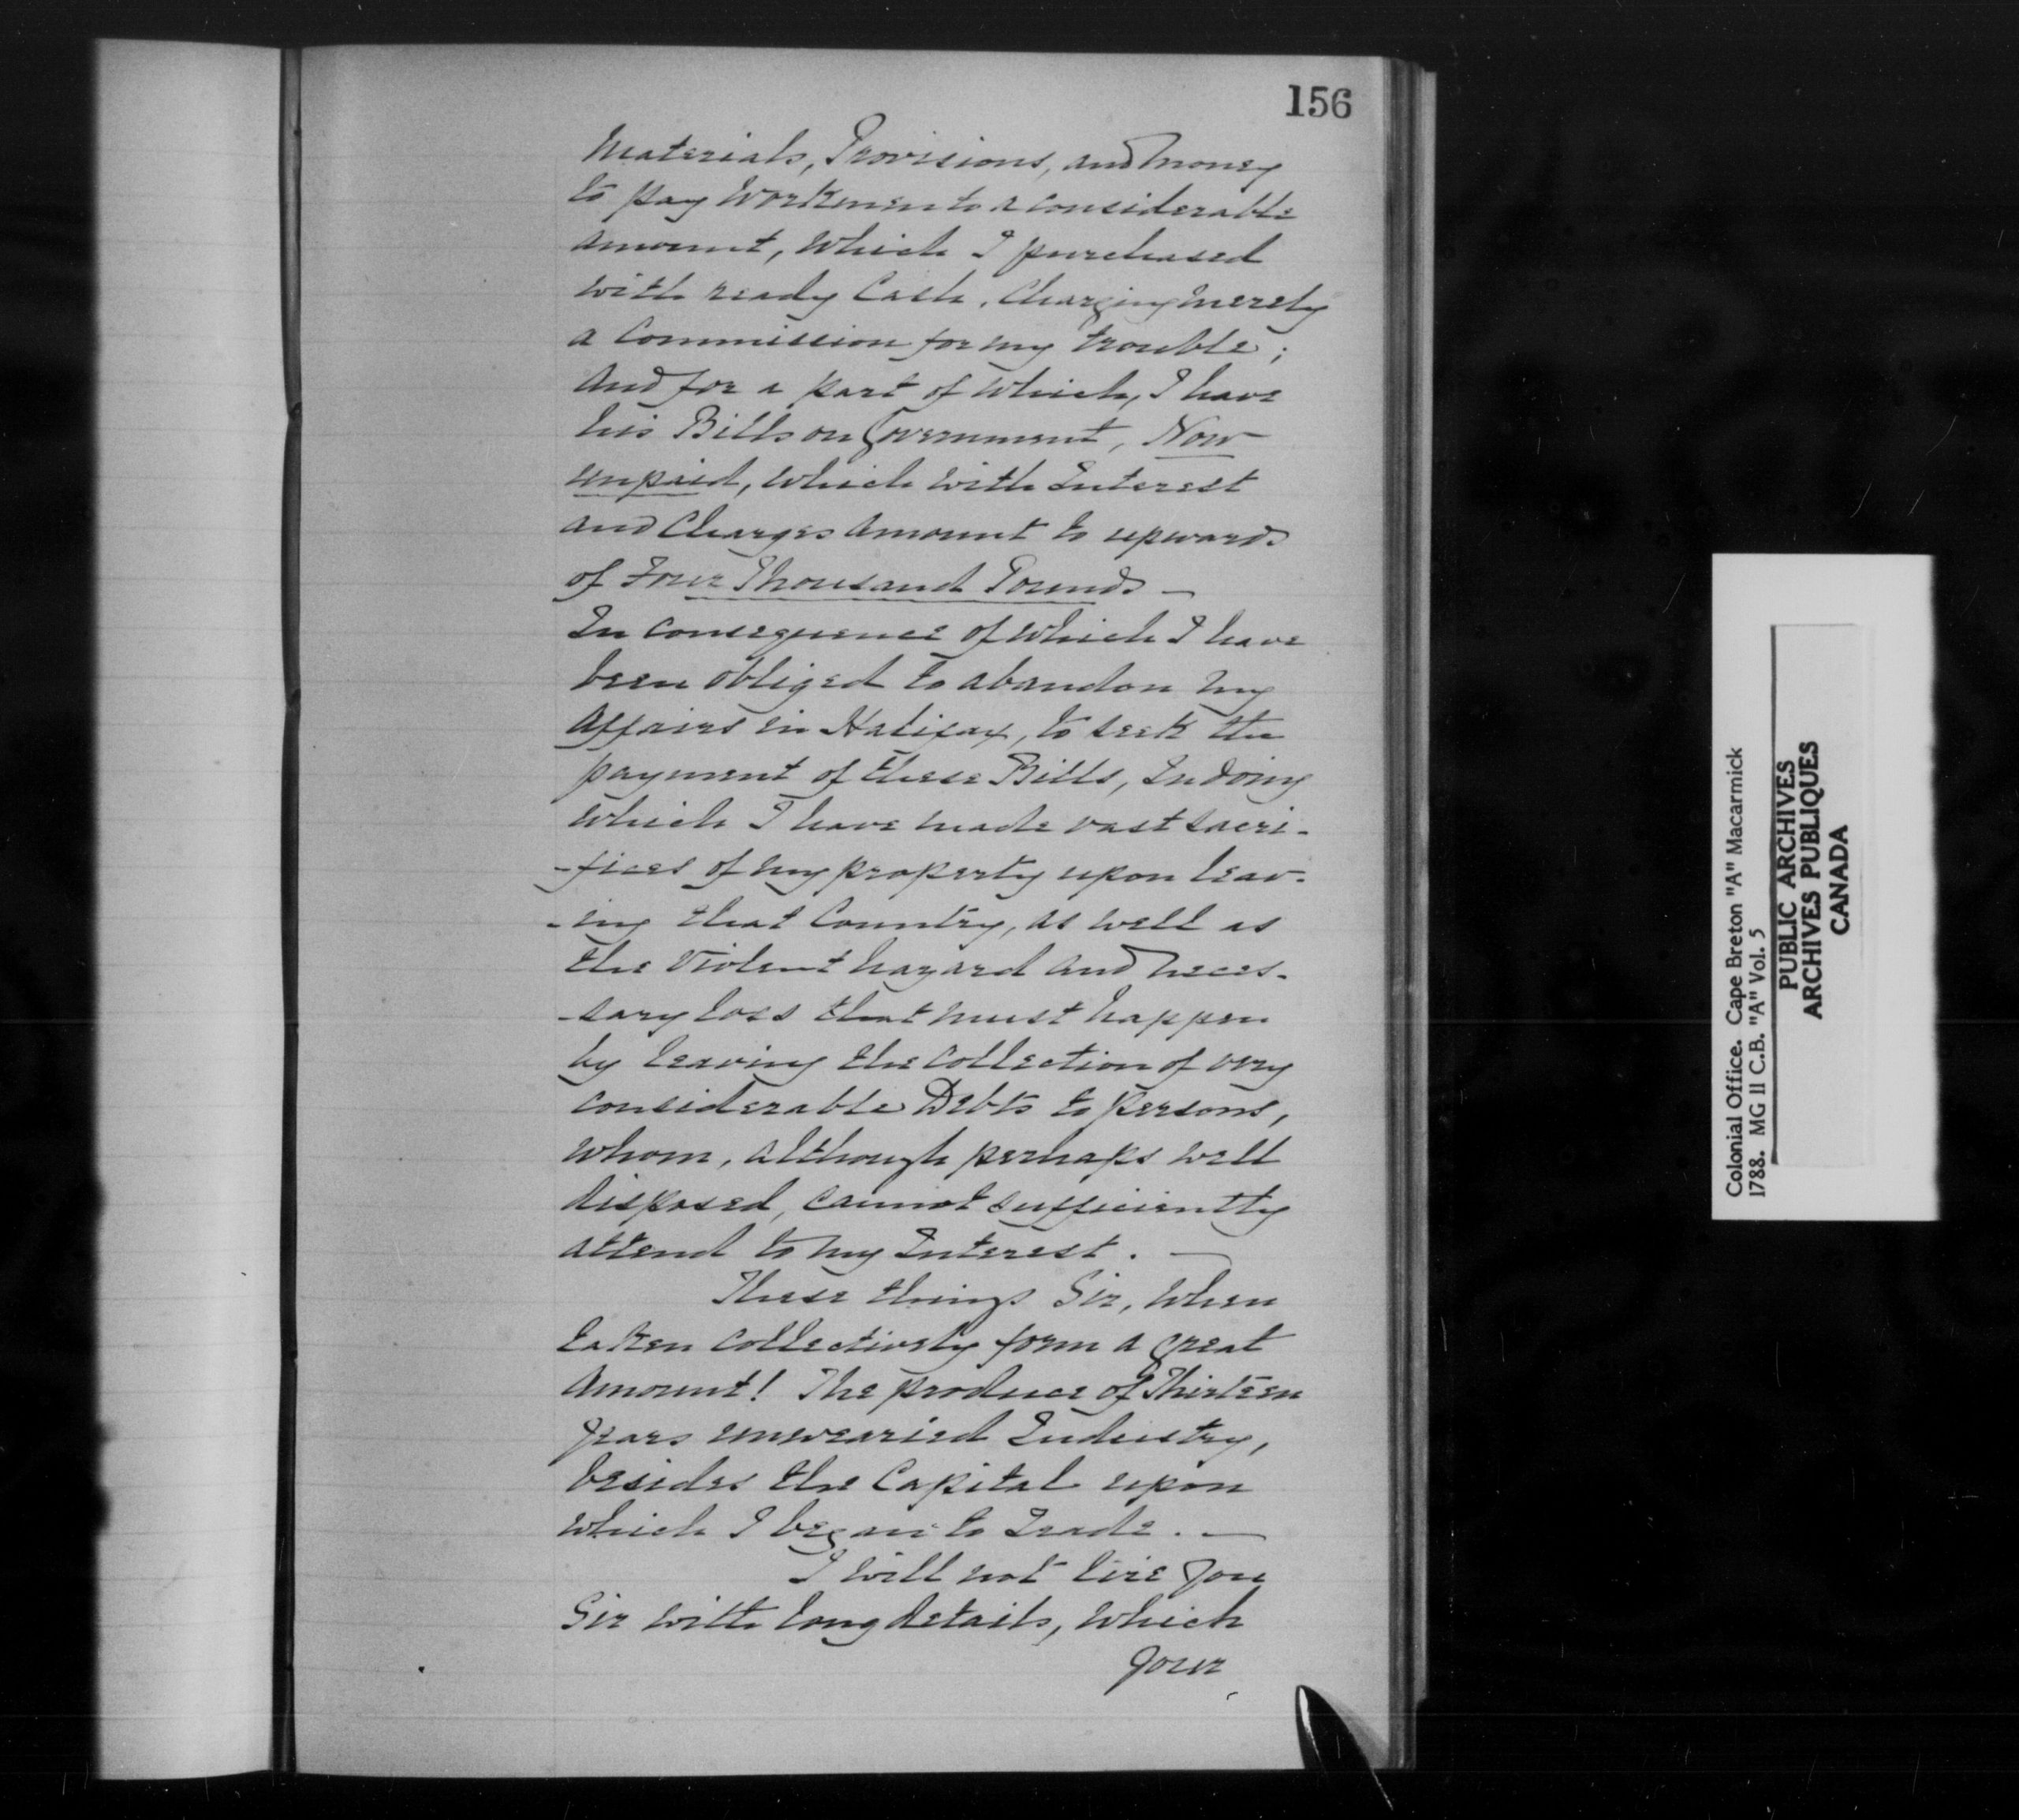 156
Materials, Provisions, and money
to pay Workmen to a considerable
amount, which I purchased
with ready Cash, Charging merely
a Commission for my trouble;
And for a part of which, I have
his Bills on Government, Now
unpaid, which with Interest
and Charges Amount to upwards
of Four Thousand Pounds —
In consequence of which I have
been obliged to abandon my
Affairs in Halifax, to seek the
payment of these Bills, In doing
which I have made vast sacri-
-fices of my property upon leav-
-ing that Country, as well as
the Violent hazard and neces-
-sary loss that must happen
by leaving the Collection of very
considerable Debts to persons,
whom, although perhaps well
disposed, cannot sufficiently
attend to my Interest. —
These things Sir, when
taken collectively form a great
Amount! The produce of Thirteen
years unwearied Industry,
besides the Capital upon
which I began to Trade. —
I will not tire you
Sir with long details, which
your
Colonial Office. Cape Breton "A" Macarmick
1788. MG 11 C.B. "A" Vol. 5
PUBLIC ARCHIVES
ARCHIVES PUBLIQUES
CANADA